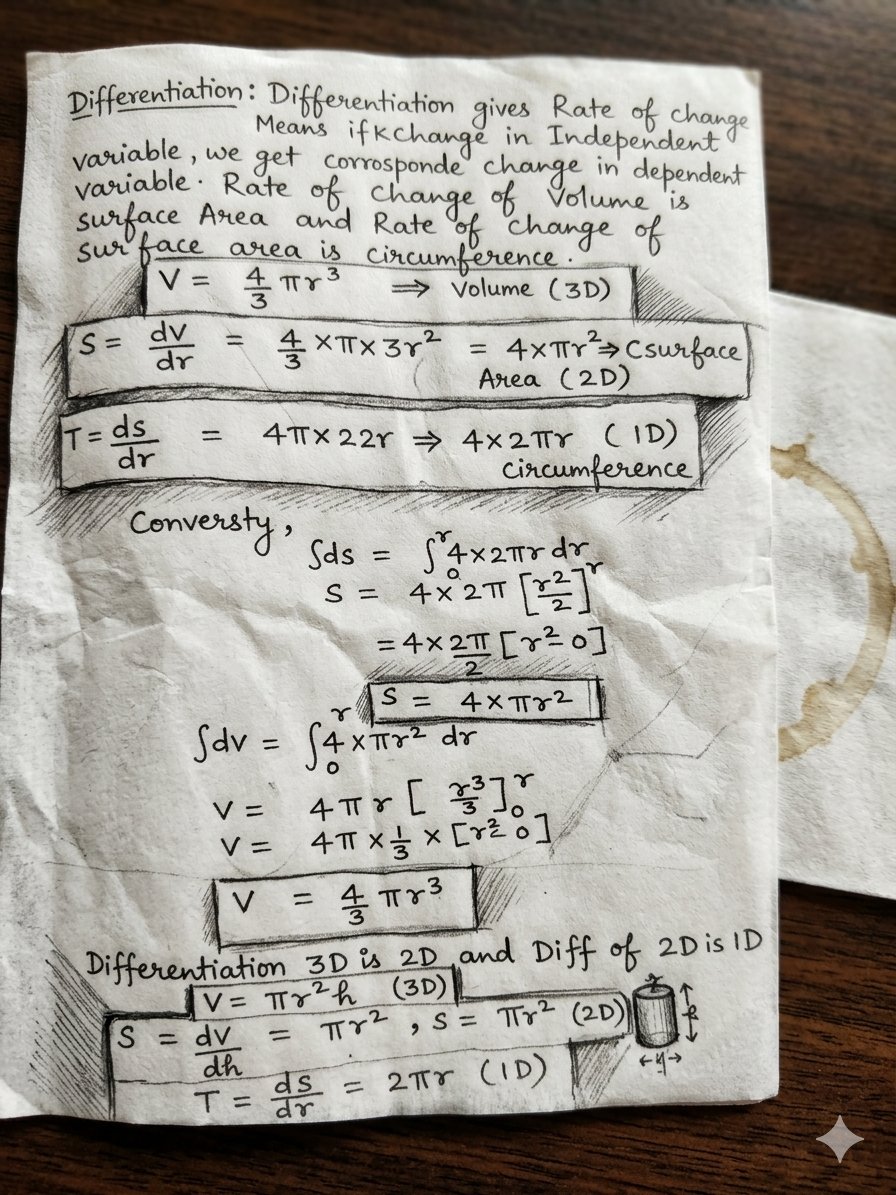 Differentiation: Differentiation gives Rate of change
Means if K change in Independent
variable, we get corrosponde change in dependent
variable. Rate of change of Volume is
surface Area and Rate of change of
surface area is circumference.
V = 4/3 πr³ ⇒ Volume (3D)
S = dv/dr = 4/3 × π × 3r² = 4×πr² ⇒ Csurface
Area (2D)
T = ds/dr = 4π × 22r ⇒ 4×2πr (1D)
circumference
Conversty,
∫ds = ∫₀ʳ 4×2πr dr
S = 4×2π [r²/2]ʳ
= 4×2π/2 [r²-0]
S = 4×πr²
∫dv = ∫₀ʳ 4×πr² dr
V = 4πr [r³/3]₀ʳ
V = 4π × 1/3 × [r²-0]
V = 4/3 πr³
Differentiation 3D is 2D and Diff of 2D is 1D
V = πr²h (3D)
S = dv/dh = πr², S = πr² (2D)
T = ds/dr = 2πr (1D)